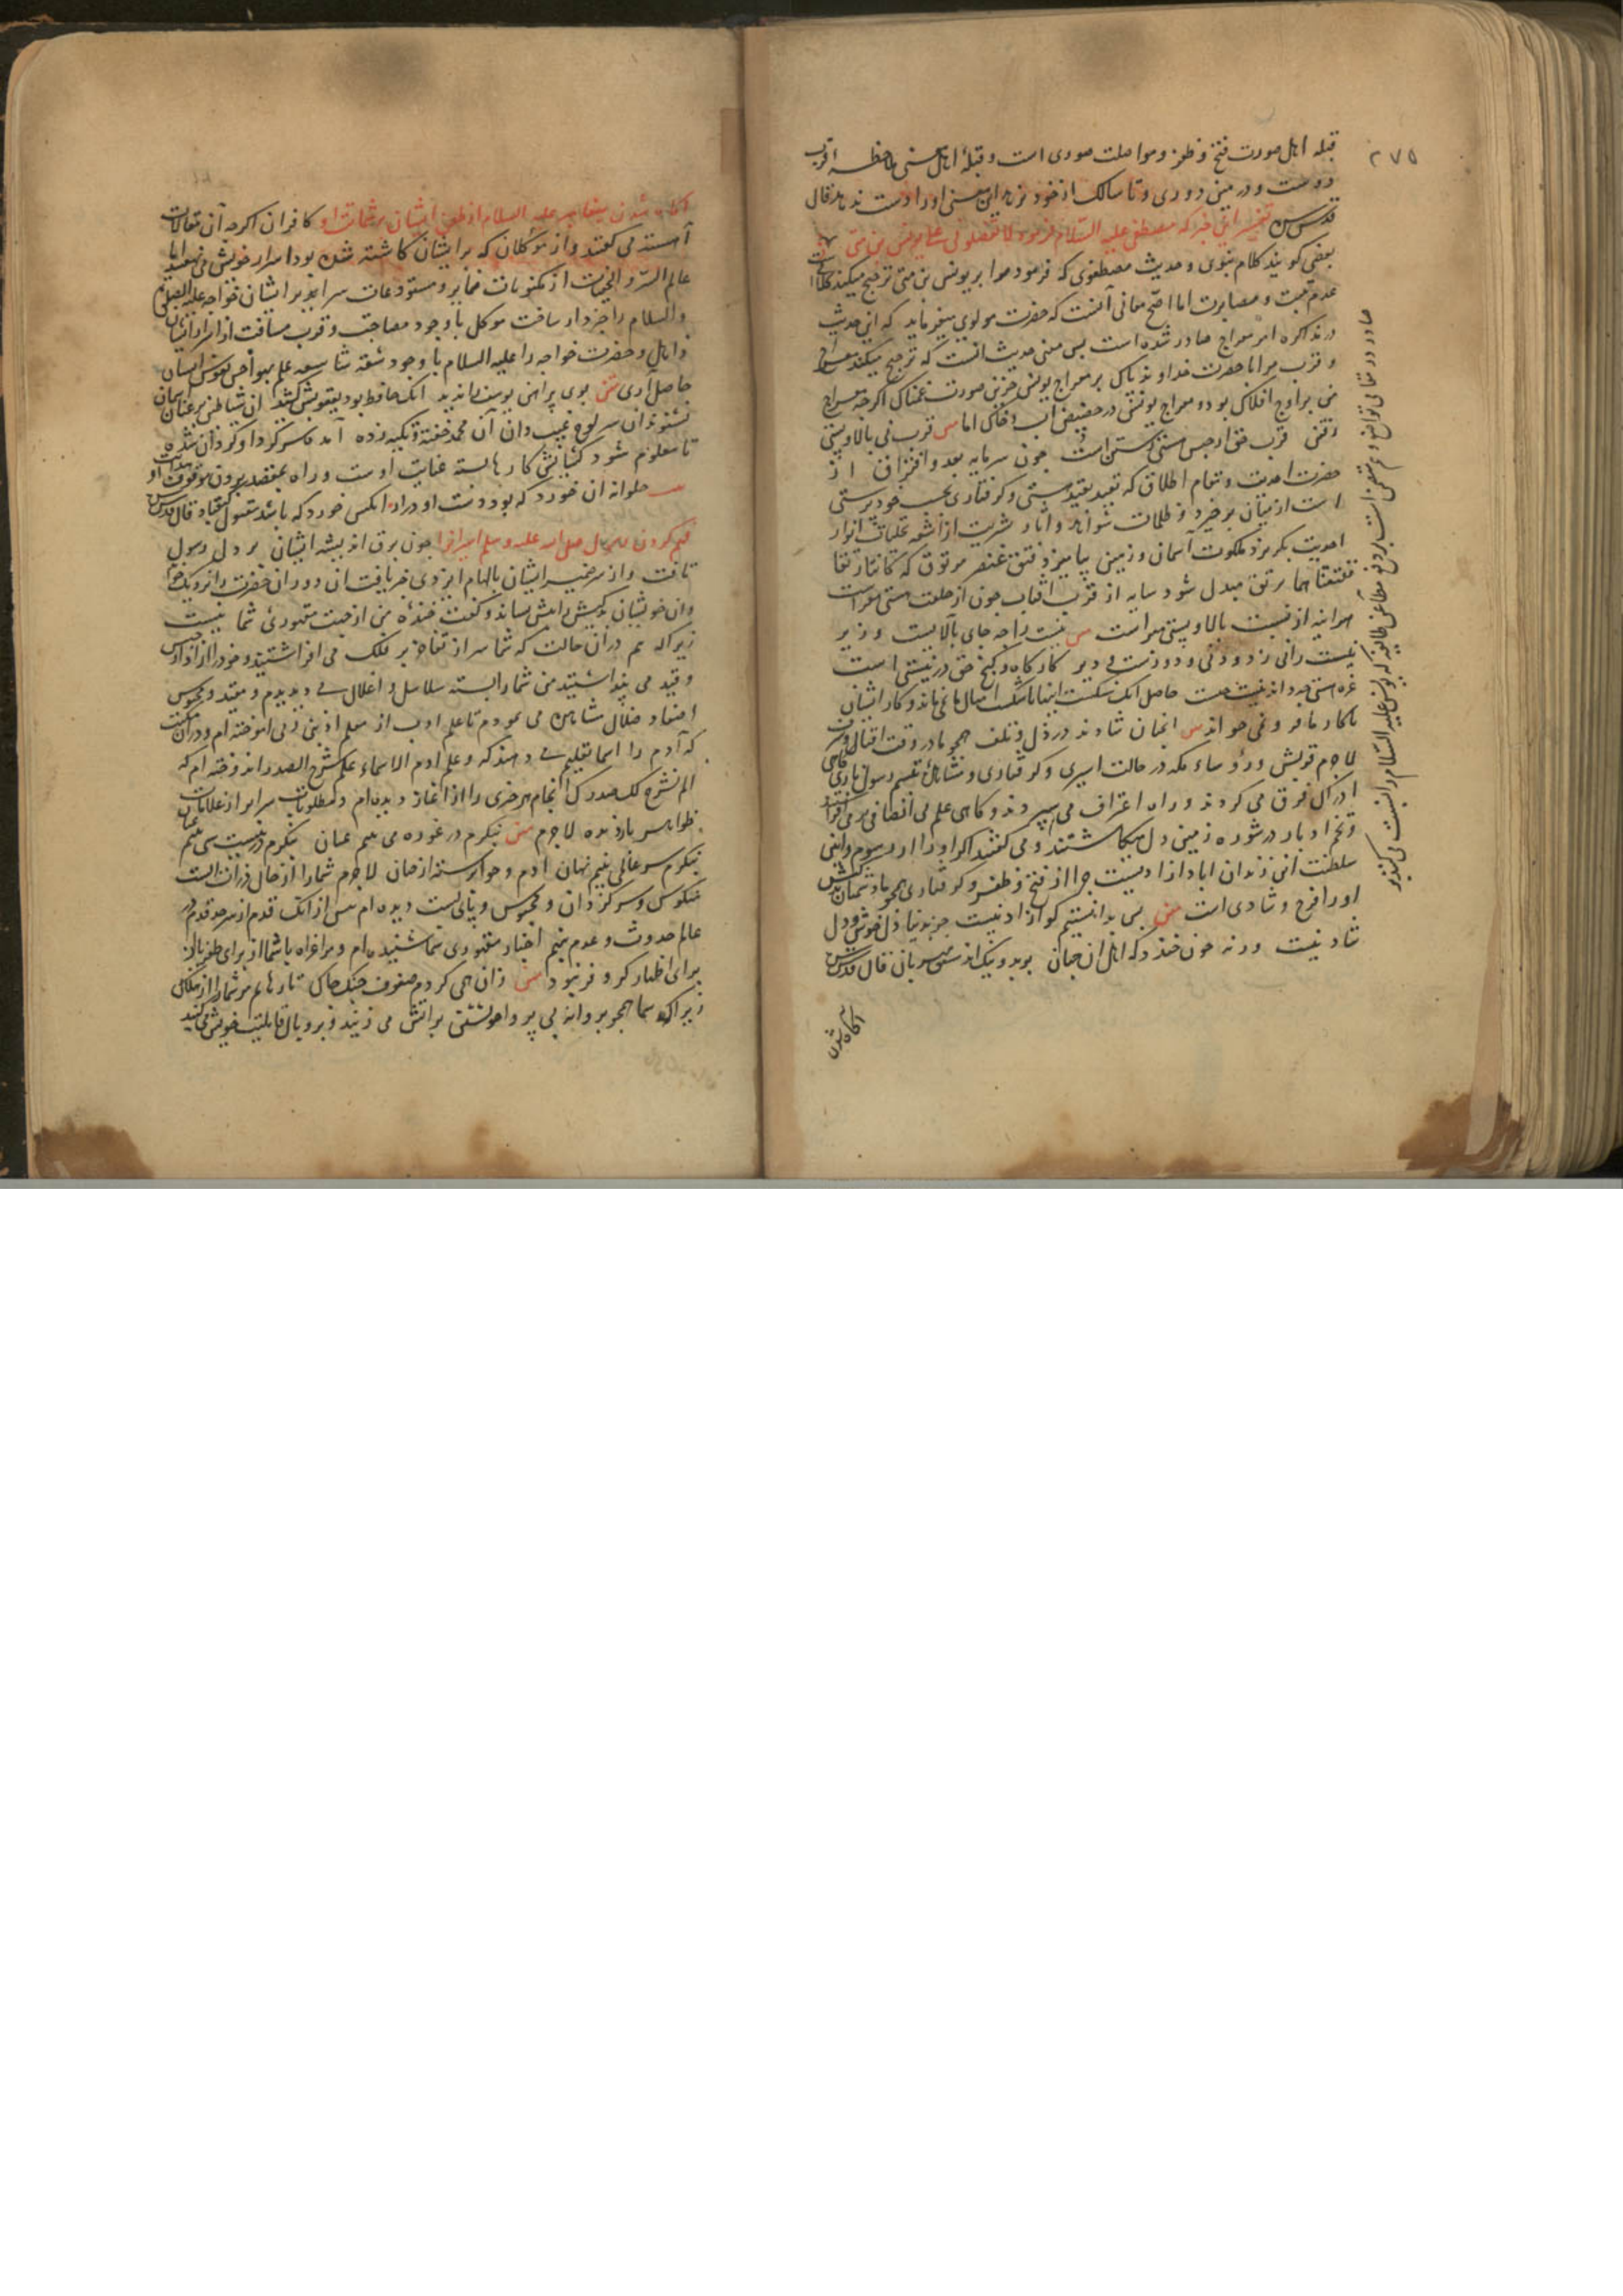 ۲۷۵
قبله اهل صورت فتح و ظفر و مواصلت صوری است و قبلهٔ اهل معنی ملاحظه قرب
دوست و در عین دوری و تا سالک از خود نرهد این معنی او را دست ندهد قال
قدس سره تفسیر این خبر که مصطفی علیه السلام فرمود لا تفضلونی علی یونس بن متی
بعضی کویند کلام نبوی و حدیث مصطفوی که فرمود مرا بر یونس بن متی ترجیح میکنید
عدم و مصابرت اما اصح معانی آنست که حضرت مولوی میفرماید که این حدیث
در تذاکره امر معراج صادر شده است پس معنی حدیث انست که ترجیح میکنید معراج
و قرب مرا با حضرت خداوند پاک بر معراج یونس حزین صورت غمناک اکرچه معراج
من بر اوج افلاک بود و معراج یونس در حضیض اب و خاک اما س قرب نی بالا و پستی
رفتن قرب حق از حبس هستی رستن است چون سرمایه بعد و افتراق از
حضرت احدیت و تمام اطلاق که تقید بقید هستی و کرفتاری بحبس خودپرستی
است از میان برخیزد و ظلمات شواهد و اثار بشریت از اشعه تجلیات انوار
احدیت بکریزد ملکوت آسمان و زمین بیامیزد فتق عنصر مرتوق که کانتا رتقا
ففتقناهما برتق مبدل شود سایه از قرب افتاب چون از خلعت هستی معراست
هر اینه از نسبت بالا و پستی مبراست س نیست را چه جای بالایست و زیر
نیست را نی زود و نی دورست و دیر کارکاه و کنج حق در نیستی است
غره هستی چه دانی نیست چیست حاصل انک شکست اینها باشکست امثال ما نمی ماند و کار ایشان
با کار ما فر و نمی خواند س انچنان شادند در ذل و تلف همچو ما در وقت اقبال و شرف
لاجرم قریش و رؤساء مکه در حالت اسیری و کرفتاری و مشاهده تبسم رسول باری کاهی
ادراک فرق می کردند و راه اعتراف می سپردند و کاهی علم بی انصافی برمی افراشتند
و تخم ادبار در شوره زمین دل میکاشتند و می کفتند اکر او را
سلطنت این زندان اباد ازادیست چرا از فتح و ظفر و کرفتاری همچو ما دشمنان
او را فرح و شادی است س پس بدانستیم کو ازاد نیست جز بدنیا دل خوش و دل
شاد نیست ورنه چون خندد که اهل ان جهان بر بد و نیک اند مشفق مهربان قال قدس سره
اکاه شدن
صادر در مقام تواضع و هضم نفس است بر دفع مطاعن طایفه که یونس علیه السلام را نسبت می کنند به
اکاه شدن پیغامبر علیه السلام از طعن ایشان بر شماتت او کافران اکرچه آن مقالات
آهسته می کفتند و از موکلان که بر ایشان کماشته شده بود اسرار خویش می نهفتند اما
عالم السر و الخفیات از مکنونات ضمایر و مستودعات سرایر ایشان خواجه علیه الصلوة
والسلام را خبردار ساخت موکل با وجود مصاحبت و قرب مسافت از اسرار ایشان
ذاهل و حضرت خواجه را علیه السلام با وجود شقه شاسعه علم بهواجس نفوس ایشان
حاصل آری س بوی پیراهن یوسف ندید انک حافظ بود یعقوبش کشید ان شیاطین بر عنان اسمان
نشنوند ان سر لوح غیب دان آن محمد خفته و تکیه زده آمد سر کرد او کردان شده
تا معلوم شود کشایش کارها بسته عنایت اوست و راه بمقصد بیرون موقوف هدایت او
س حلوا نه ان خورد که بود دست او دراز انکس خورد که باشد مقبول قال قدس سره
فهم کردن رسول صلی الله علیه وسلم اسیران را چون برق اندیشه ایشان بر دل رسول
تافت و از سر ضمیر ایشان بالهام ایزدی خبر یافت ان دوران حضرت را نزدیک خواند
وان خویشان کیش را پیش نشاند و کفت خنده من از جهت مقهوری شما نیست
زیرا که هم در ان حالت که شما سر از تفاخر بر فلک می افراشتید و خود را ازاد از حبس
و قید می پنداشتید من شما را بسته سلاسل و اغلال می دیدیم و مقید و محبوس
اصفاد ضلال مشاهده می نمودم تا علم ادب از معلم ادبنی ربی اموخته ام و در ان مکتب
که آدم را اسما تعلیم می دهند که و علم ادم الاسماء علم شرح الصدر اندوخته ام که
الم نشرح لک صدرک انجام هر چیزی را از آغاز دیده ام و مطلوبات سرایر از علامات
ظواهر بازدیده لاجرم س بنکرم در غوره می بینم عیان بنکرم در نیست شی بینم عیان
بنکرم سر عالمی بینم نهان ادم و حوا نرسته از جهان لاجرم شما را از حال ذرات الست
منکوس و سرکردان و محبوس و پابست دیده ام پس از انک قدم از سرحد قدم در
عالم حدوث و عدم نهم اخبار مقهوری شما شنیده ام و مرا غزاه با شما از برای ظفر یا از
برای اظهار کر و فر نبود س زان همی کردم صفوف جنک چاک تا رهانم مر شما را از هلاک
زیرا که شما همچو پروانه بی پروا خویشتن بر اتش می زنید و پر و بال قابلیت خویش می کنید